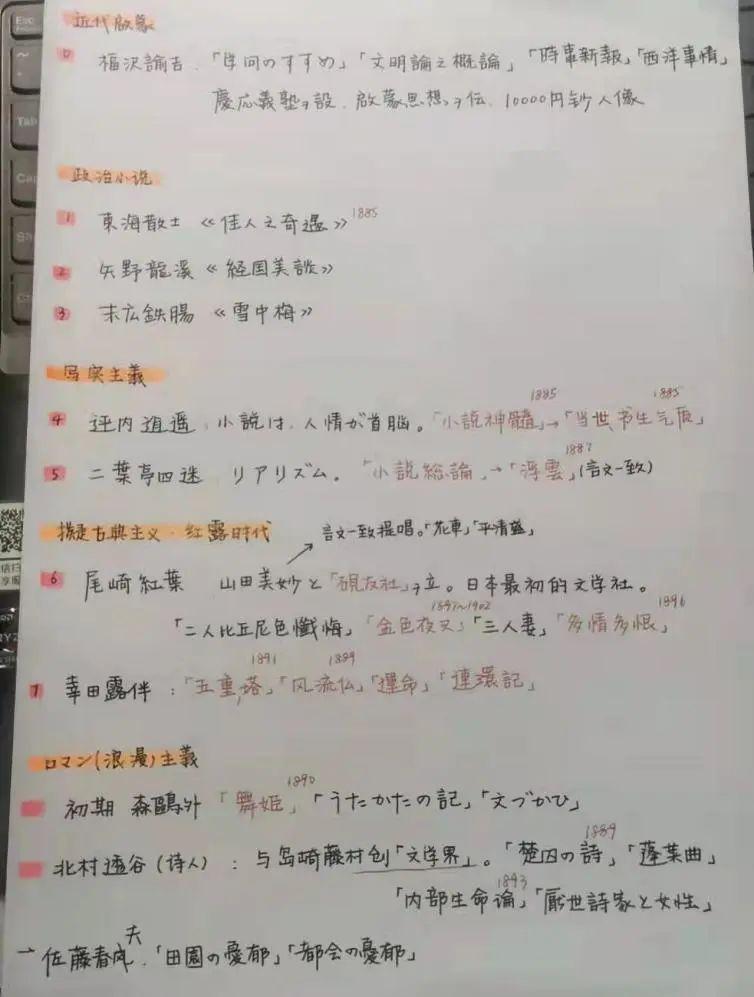 近代啟蒙
0 福沢諭吉.「学问のすすめ」「文明論之概論」「時事新報」「西洋事情」
慶応義塾ヲ設.啟蒙思想ヲ伝.10000円钞人像
政治小说
1 東海散士 《佳人之奇遇》1885
2 矢野龍溪 《経国美談》
3 末広鉄腸 《雪中梅》
写実主義
4 坪内逍遥:小説は、人情が首脳。「小説神髓」1885→「当世书生气质」1885
5 二葉亭四迷 リアリズム。「小説総論」→「浮雲」1887(言文一致)
拟古典主义·红露时代
言文一致提唱。「花車」「平清盛」
6 尾崎紅葉 山田美妙と「硯友社」ヲ立。日本最初的文学社。
「二人比丘尼色懺悔」「金色夜叉」1897~1902「三人妻」「多情多恨」1896
7 幸田露伴:「五重塔」1891「风流仏」1889「運命」「連環記」
ロマン(浪漫)主義
初期 森鷗外「舞姫」1890「うたかたの記」「文づかひ」
北村透谷(诗人):与岛崎藤村创「文学界」。「楚囚の詩」1889「蓬莱曲」
「内部生命论」1893「厭世詩家と女性」
一佐藤春夫.「田園の憂郁」「都会の憂郁」